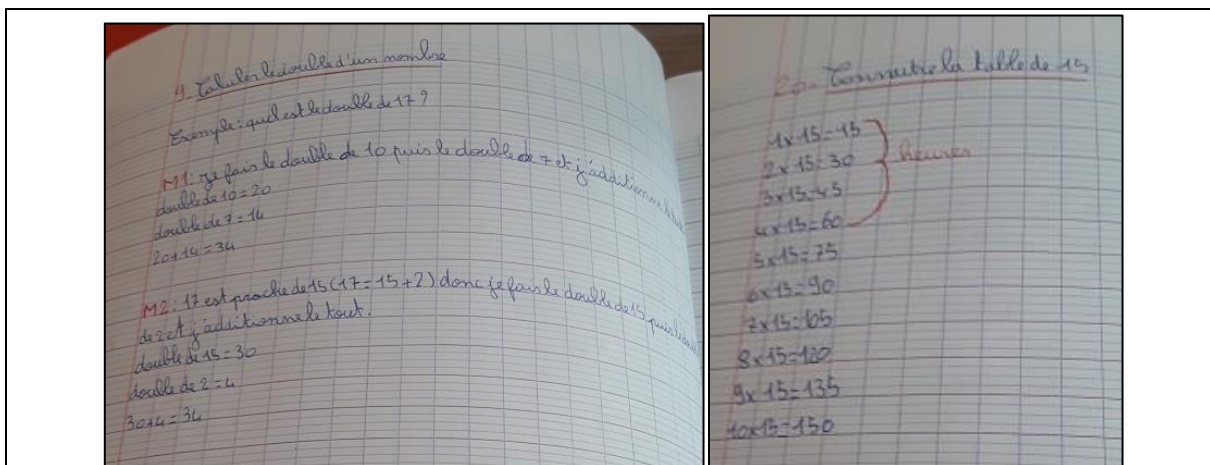 9. Calculer le double d'un nombre
Exemple : quel est le double de 17 ?
M1 : je fais le double de 10 puis le double de 7 et j'additionne le tout
double de 10 = 20
double de 7 = 14
20+14 = 34
M2 : 17 est proche de 15 (17 = 15 + 2) donc je fais le double de 15 puis le double
de 2 et j'additionne le tout.
double de 15 = 30
double de 2 = 4
30+4 = 34
20. Connaître la table de 15
1x15=15
2x15=30
3x15=45
4x15=60
heures
5x15=75
6x15=90
7x15=105
8x15=120
9x15=135
10x15=150